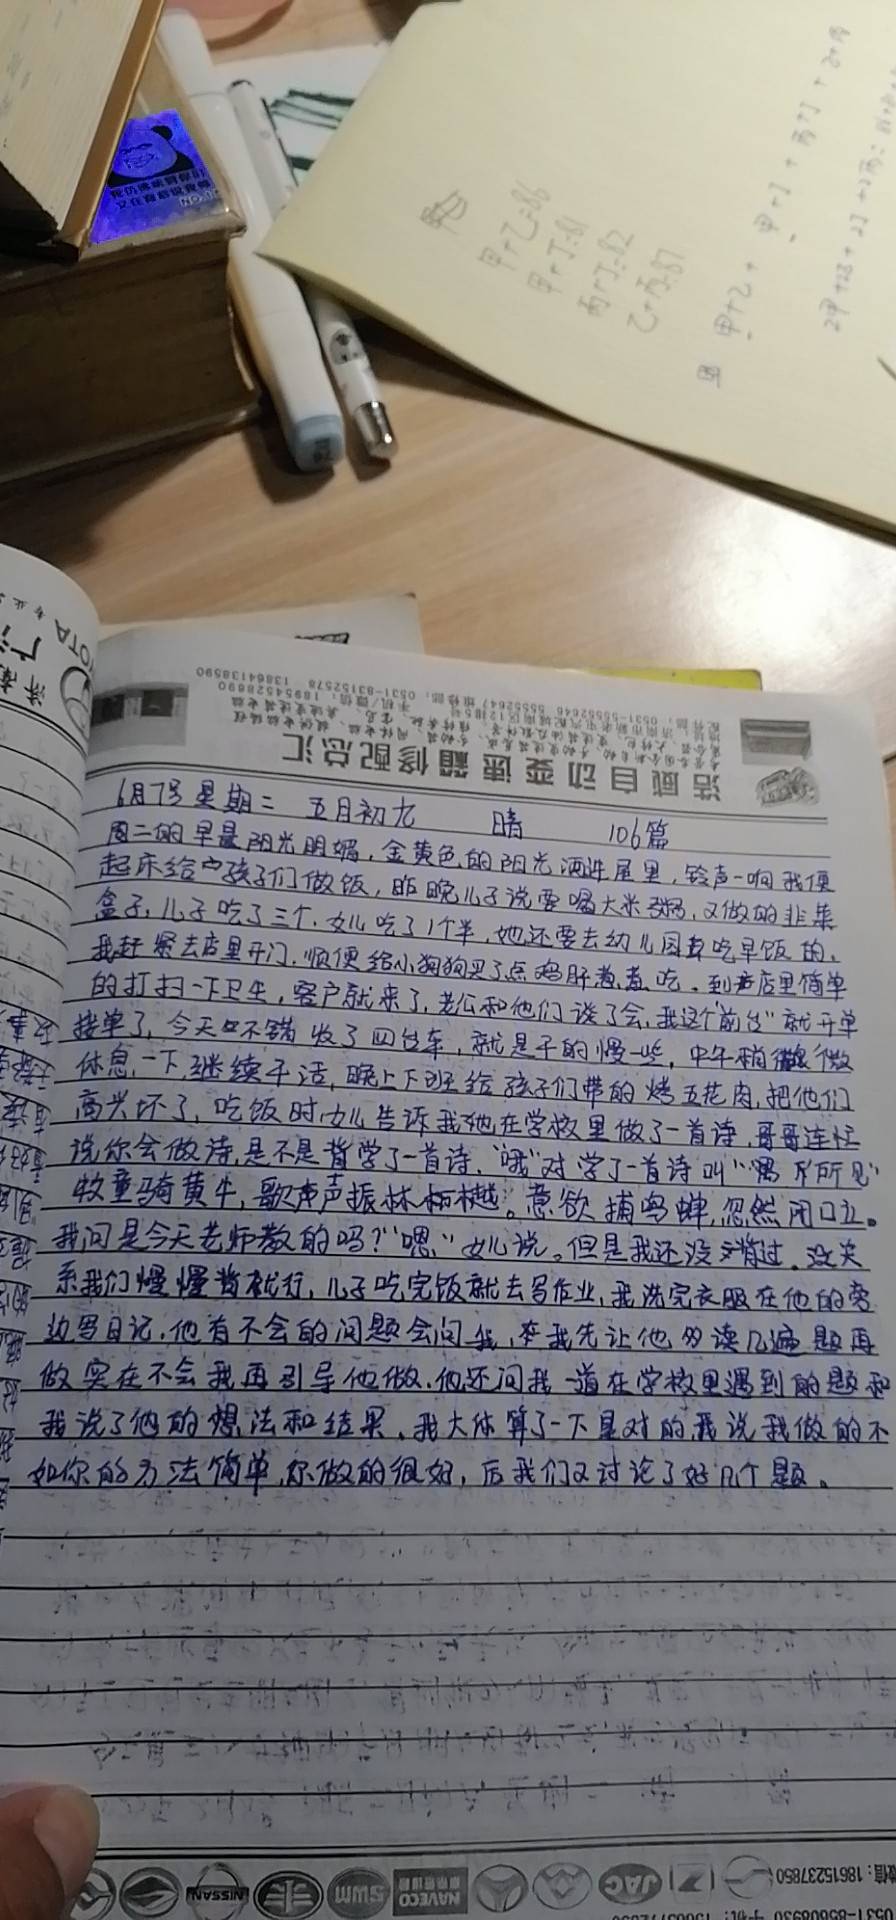 我仿佛听到你们
又在背后说我帅
甲+乙=86
甲+丁=81
丙+丁=82
乙+丙=87
浩威自动变速箱修配总汇
0531-83152578 13864138590
6月7号 星期二 五月初九 晴 106篇
周二的早晨阳光明媚,金黄色的阳光洒进屋里,铃声一响我便
起床给孩子们做饭,昨晚儿子说要喝大米粥,又做的韭菜
盒子,儿子吃了三个,女儿吃了1个半,她还要去幼儿园吃早饭的,
我赶紧去店里开门,顺便给小狗狗买了点鸡肝煮煮吃。到店里简单
的打扫一下卫生,客户就来了,老公和他们谈了会,我这个“前台”就开单
接单了,今天不错收了四台车,就是干的慢一些,中午稍微
休息一下,继续干活,晚上下班给孩子们带的烤五花肉,把他们
高兴坏了,吃饭时,女儿告诉我她在学校里做了一首诗,哥哥连忙
说你会做诗,是不是学了一首诗,“哦”对学了一首诗叫“所见”
牧童骑黄牛,歌声振林樾。意欲捕鸣蝉,忽然闭口立。
我问是今天老师教的吗?“嗯”女儿说。但是我还没背过,没关
系我们慢慢背就行,儿子吃完饭就去写作业,我洗完衣服在他的旁
边写日记,他有不会的问题会问我,我先让他多读几遍题再
做实在不会我再引导他做,他还问我一道在学校里遇到的题和
我说了他的想法和结果,我大体算了一下是对的我说我做的不
如你的方法简单,你做的很好,后我们又讨论了好几个题。
NISSAN SWM NAVECO JAC
微信:18615237850